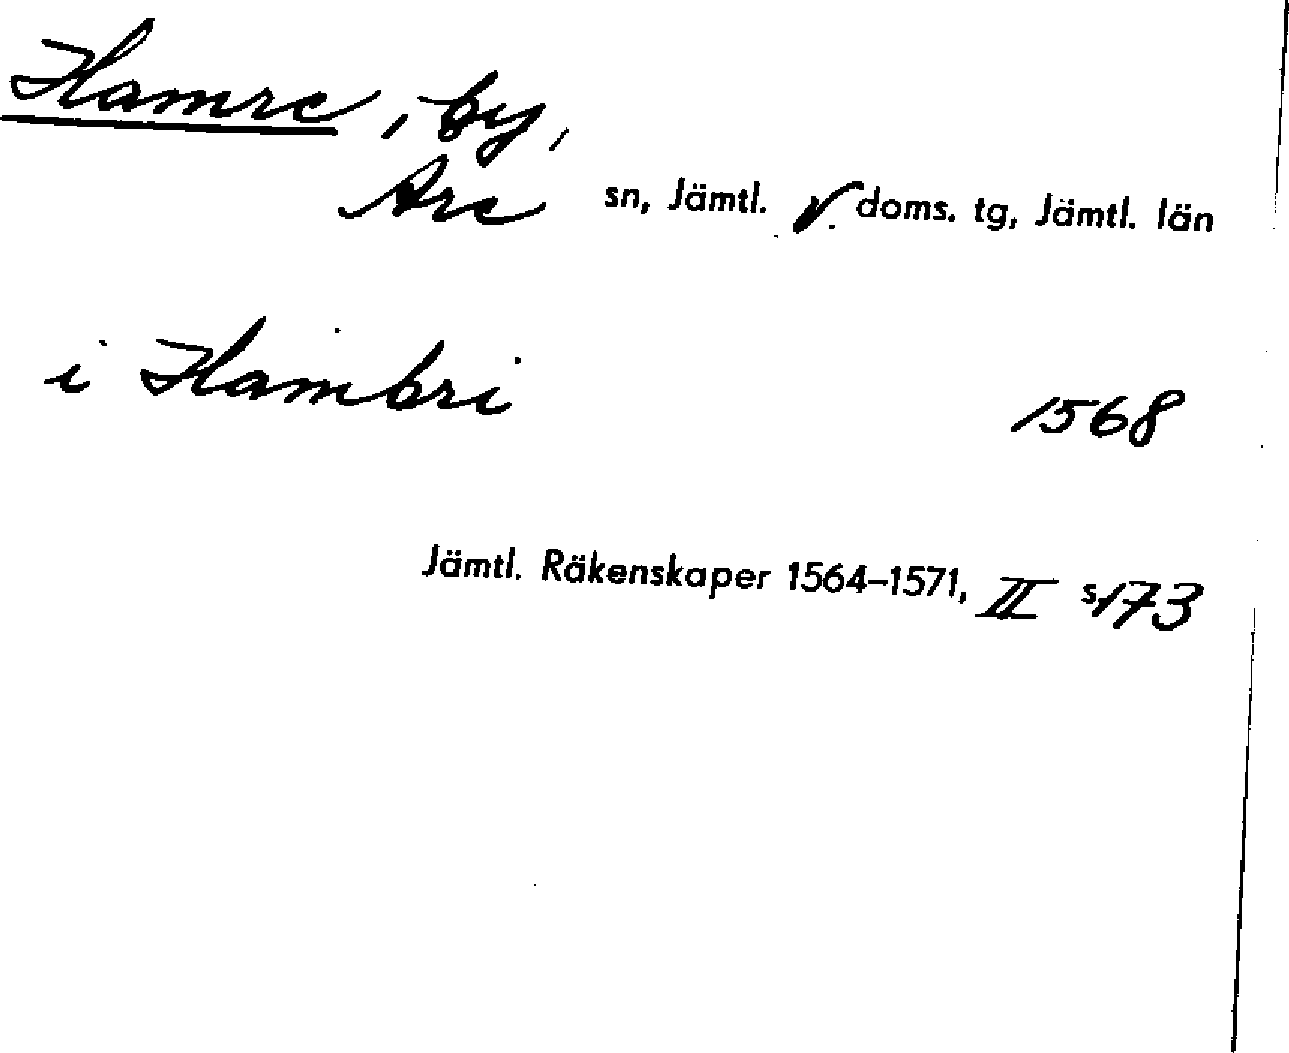 Hamre, by,
Åre sn, Jämtl. v. doms. tg, Jämtl. län
i Hambri 1568
Jämtl. Räkenskaper 1564–1571, II s. 173